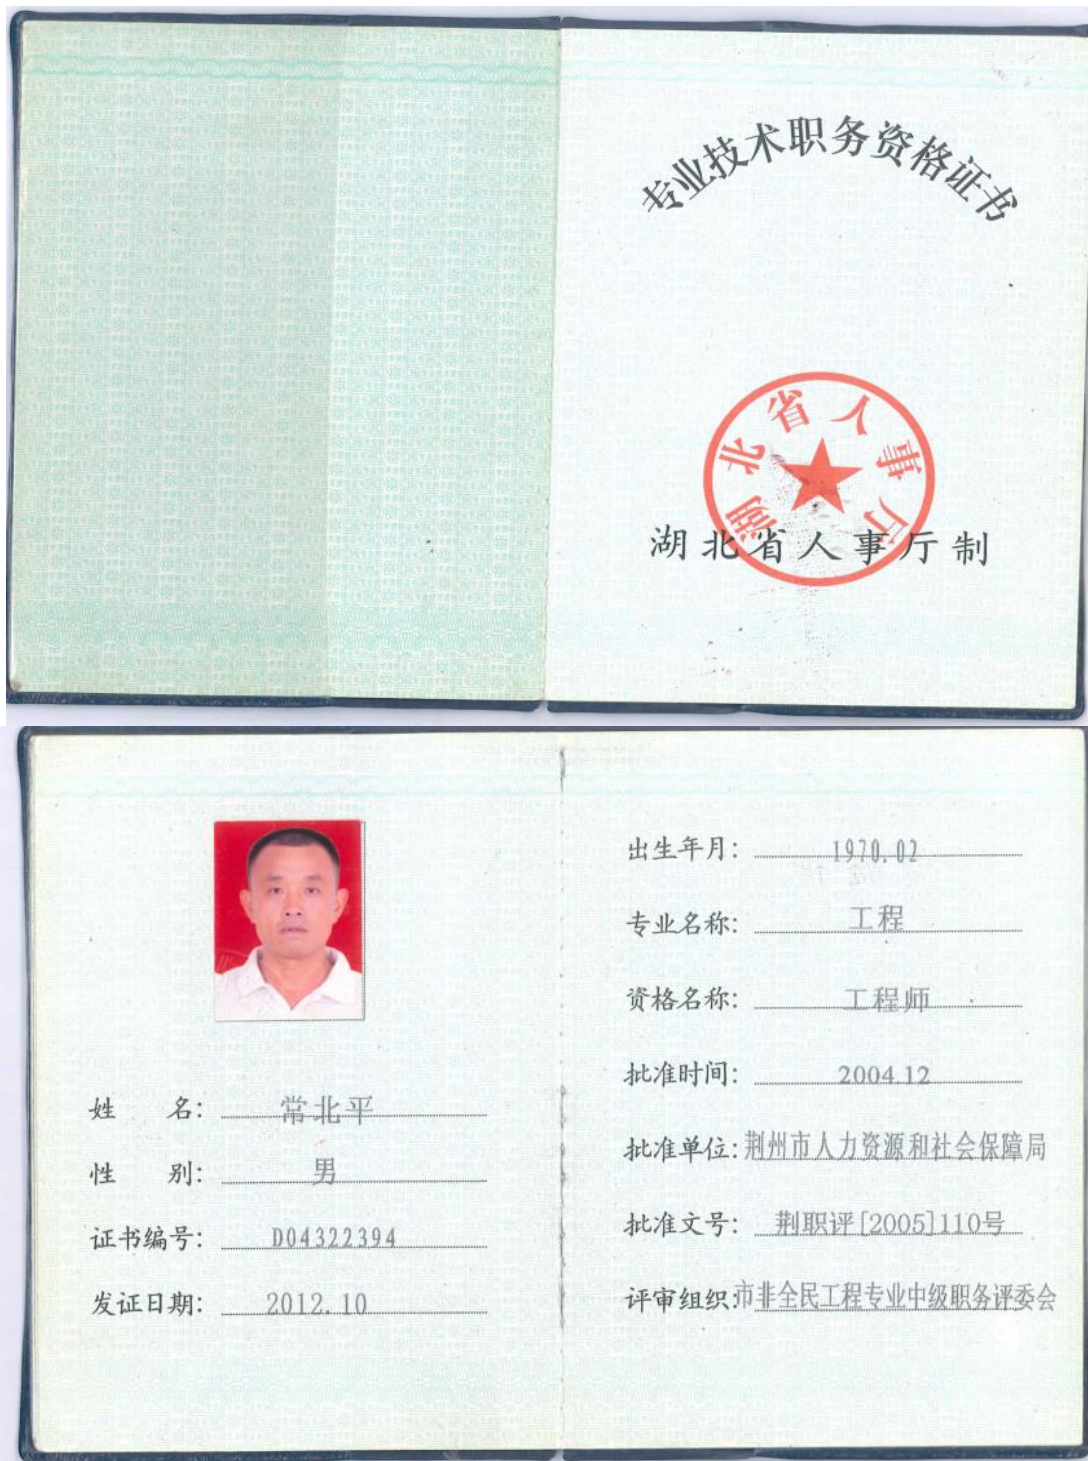 专业技术职务资格证书
湖北省人事厅
湖北省人事厅制
姓 名: 常北平
性 别: 男
证书编号: D04322394
发证日期: 2012.10
出生年月: 1970.02
专业名称: 工程
资格名称: 工程师
批准时间: 2004.12
批准单位: 荆州市人力资源和社会保障局
批准文号: 荆职评[2005]110号
评审组织: 市非全民工程专业中级职务评委会